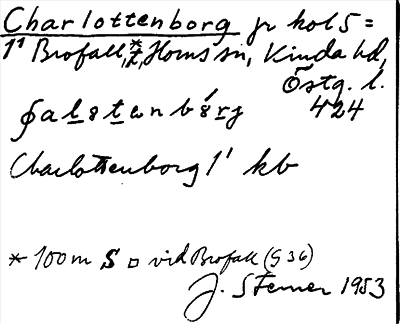 Charlottenborg jr kol 5 =
1' Brofall,* t, Horns sn, Kinda hd,
Östg. l.
424
Charlottenborg 1' kb
* 100 m S □ vid Brofall (G 36)
J. Sterner 1953